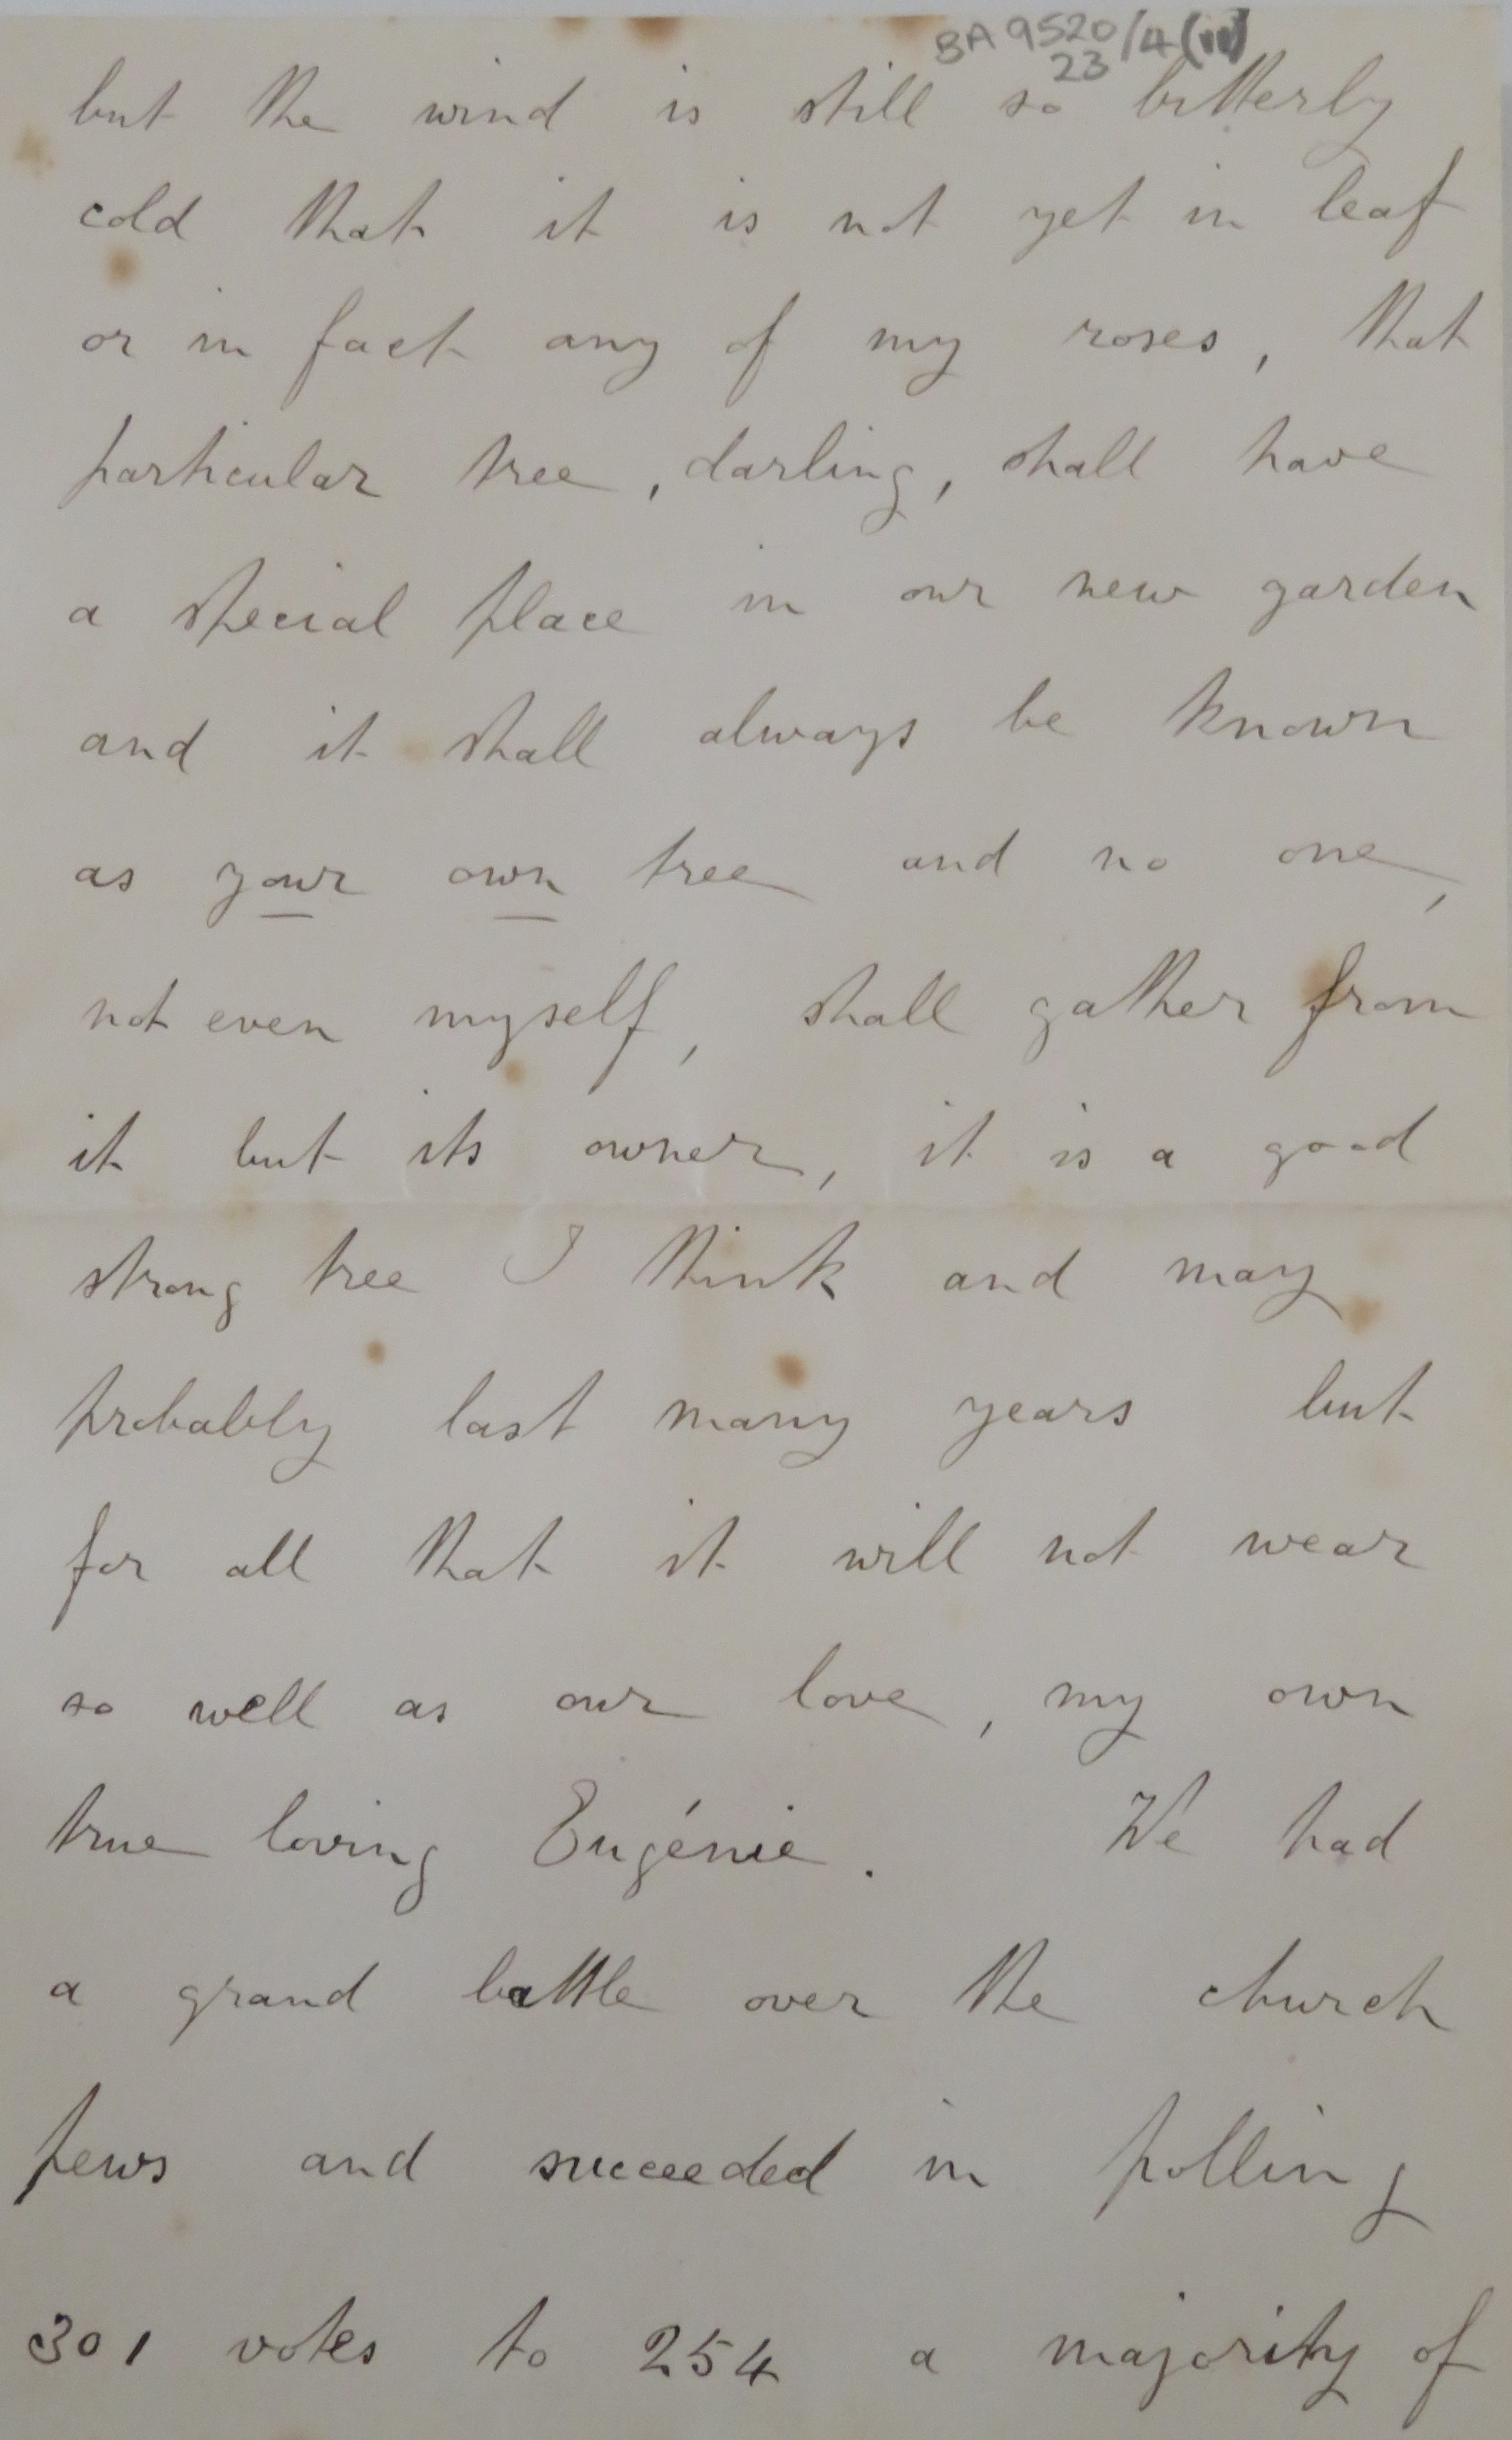 BA 9520/4(ii)
23
but the wind is still so bitterly
cold that it is not yet in leaf
or in fact any of my roses, that
particular tree, darling, shall have
a special place in our new garden
and it shall always be known
as your own tree and no one,
not even myself, shall gather from
it but its owner, it is a good
strong tree I think and may
probably last many years but
for all that it will not wear
so well as our love, my own
true loving Eugénie. We had
a grand battle over the church
pews and succeeded in polling
301 votes to 254 a majority of